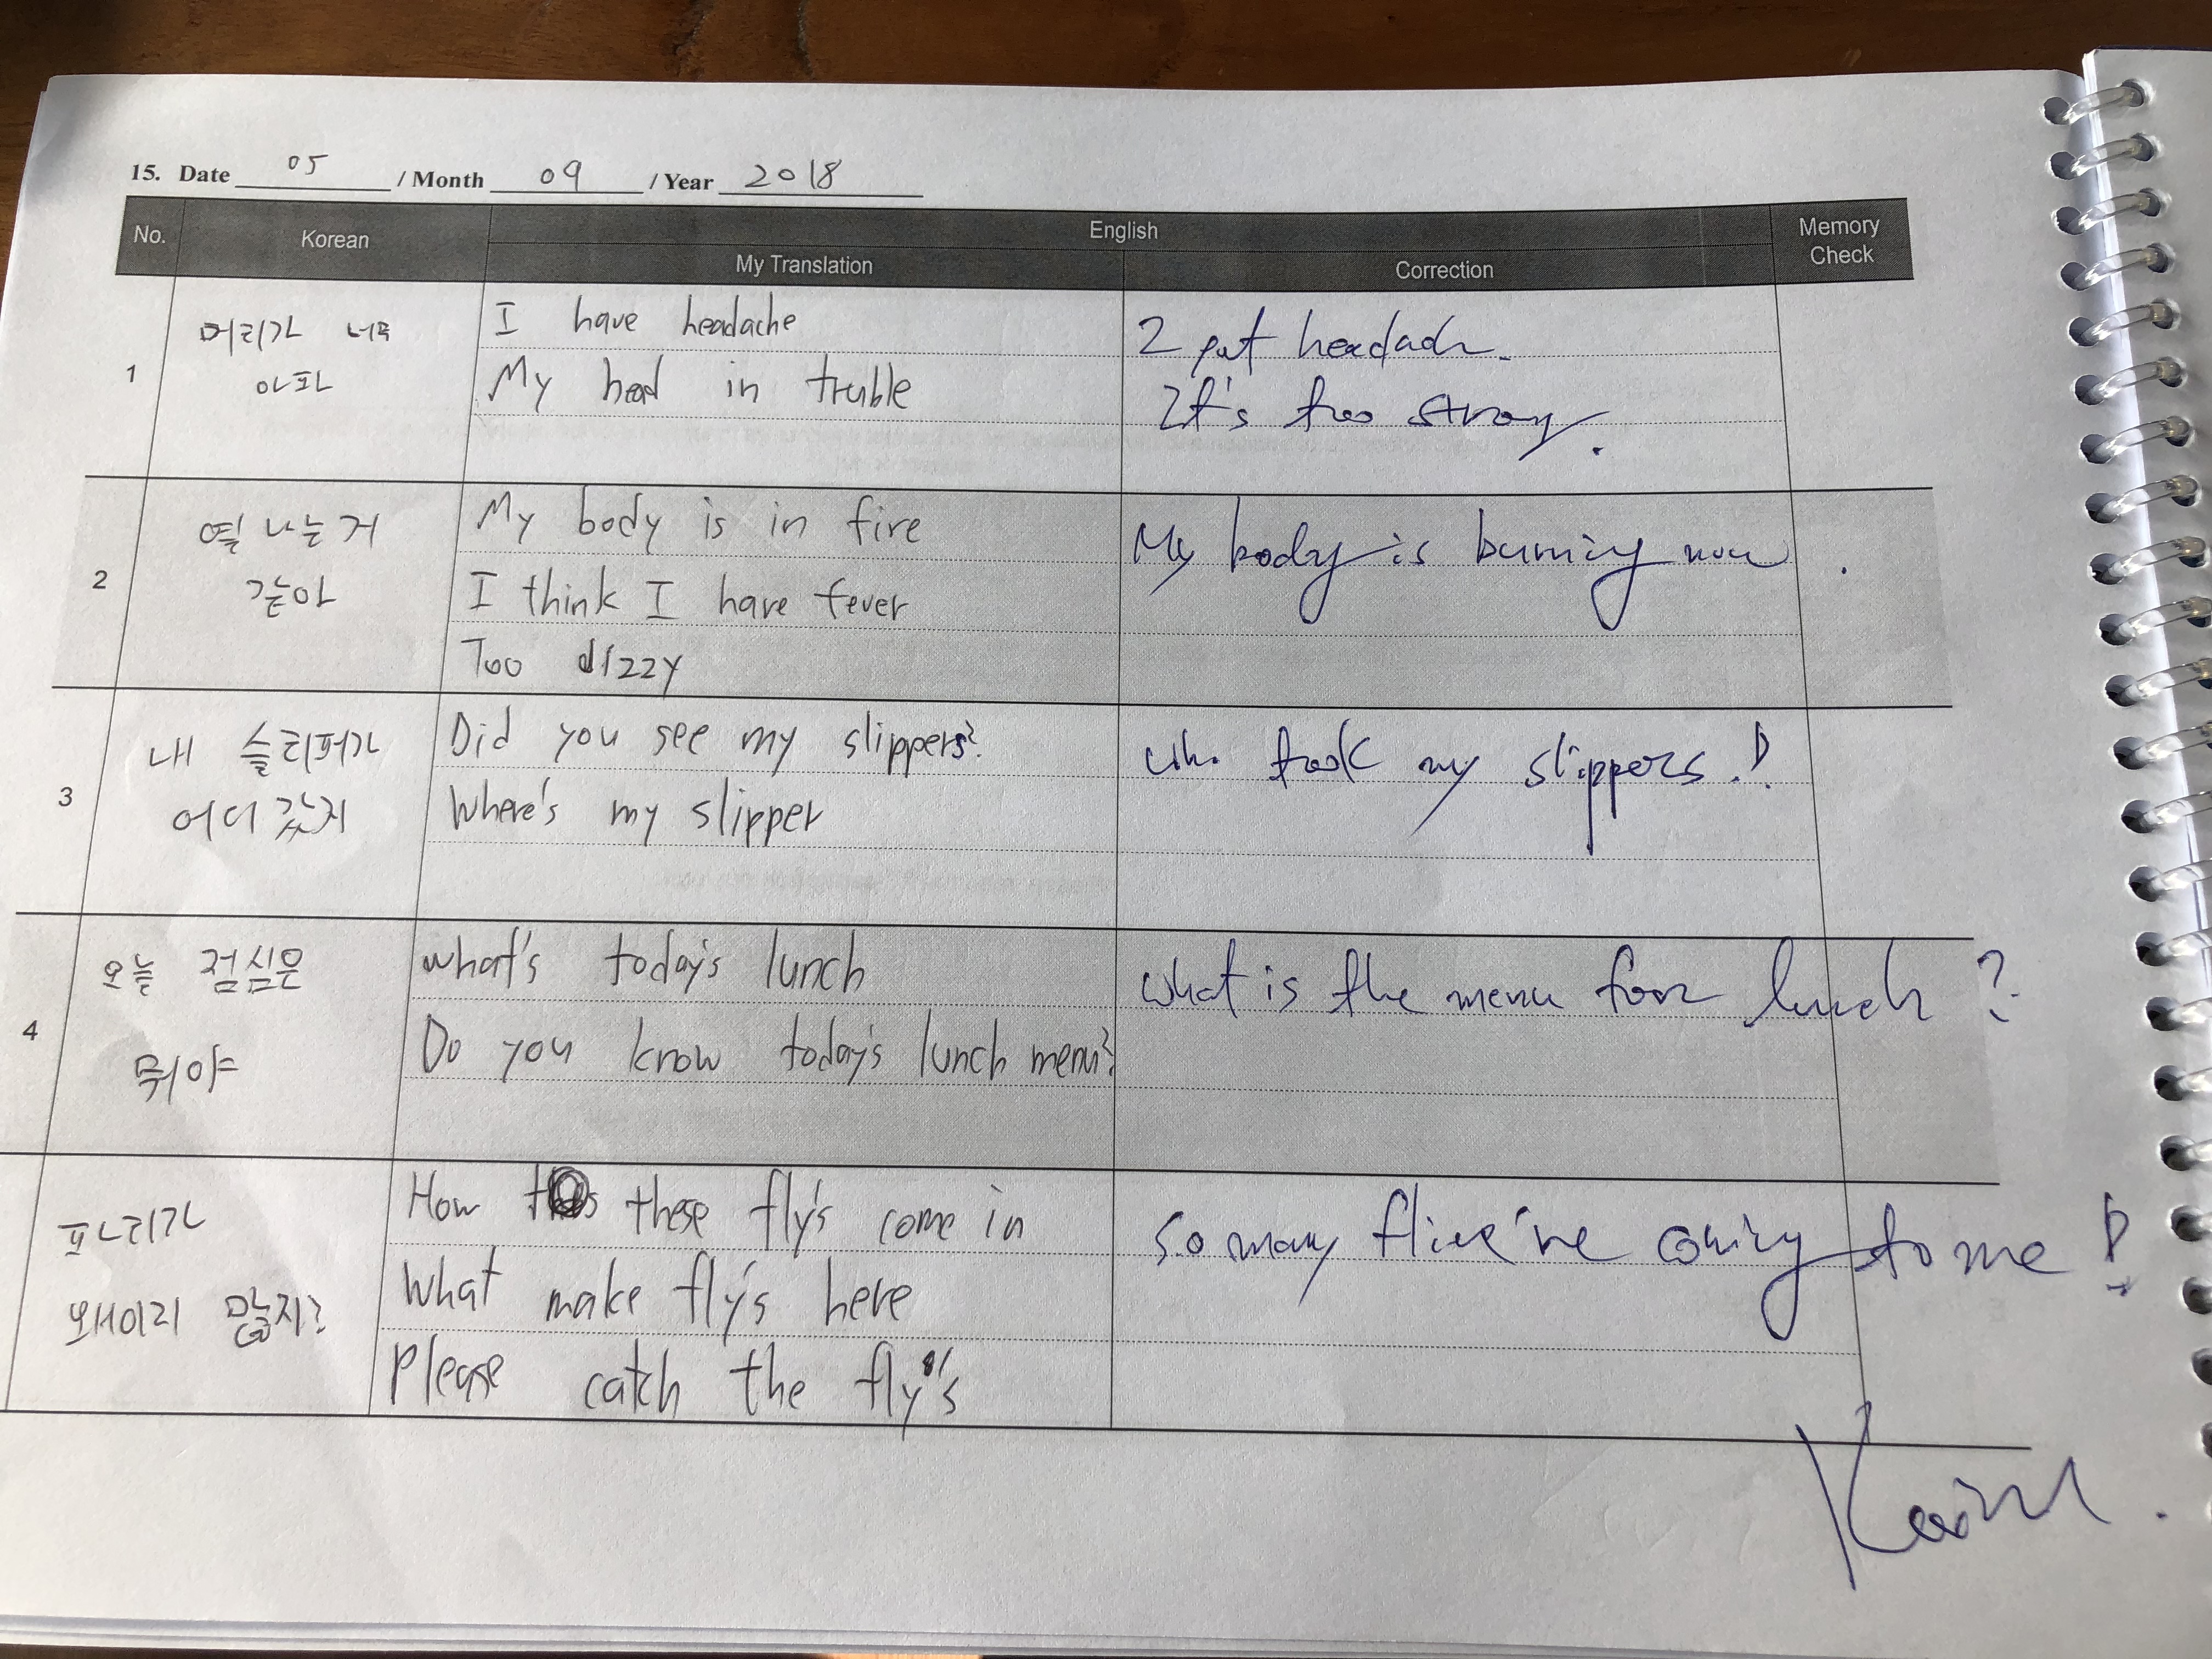 15. Date 05 / Month 09 / Year 2018
No.
Korean
English
Memory Check
My Translation
Correction
1
머리가 너무
아파
I have headache
My head in truble
put headach.
It's too strong.
2
열 나는거
같아
My body is in fire
I think I have fever
Too dizzy
My body is burning now.
3
내 슬리퍼가
어디갔지
Did you see my slippers?
Where's my slipper
Who took my slippers!
4
오늘 점심은
뭐야
what's today's lunch
Do you know today's lunch menu?
What is the menu for lunch?
파리가
왜이리 많지?
How these fly's come in
What make fly's here
Please catch the fly's
So many coming to me!